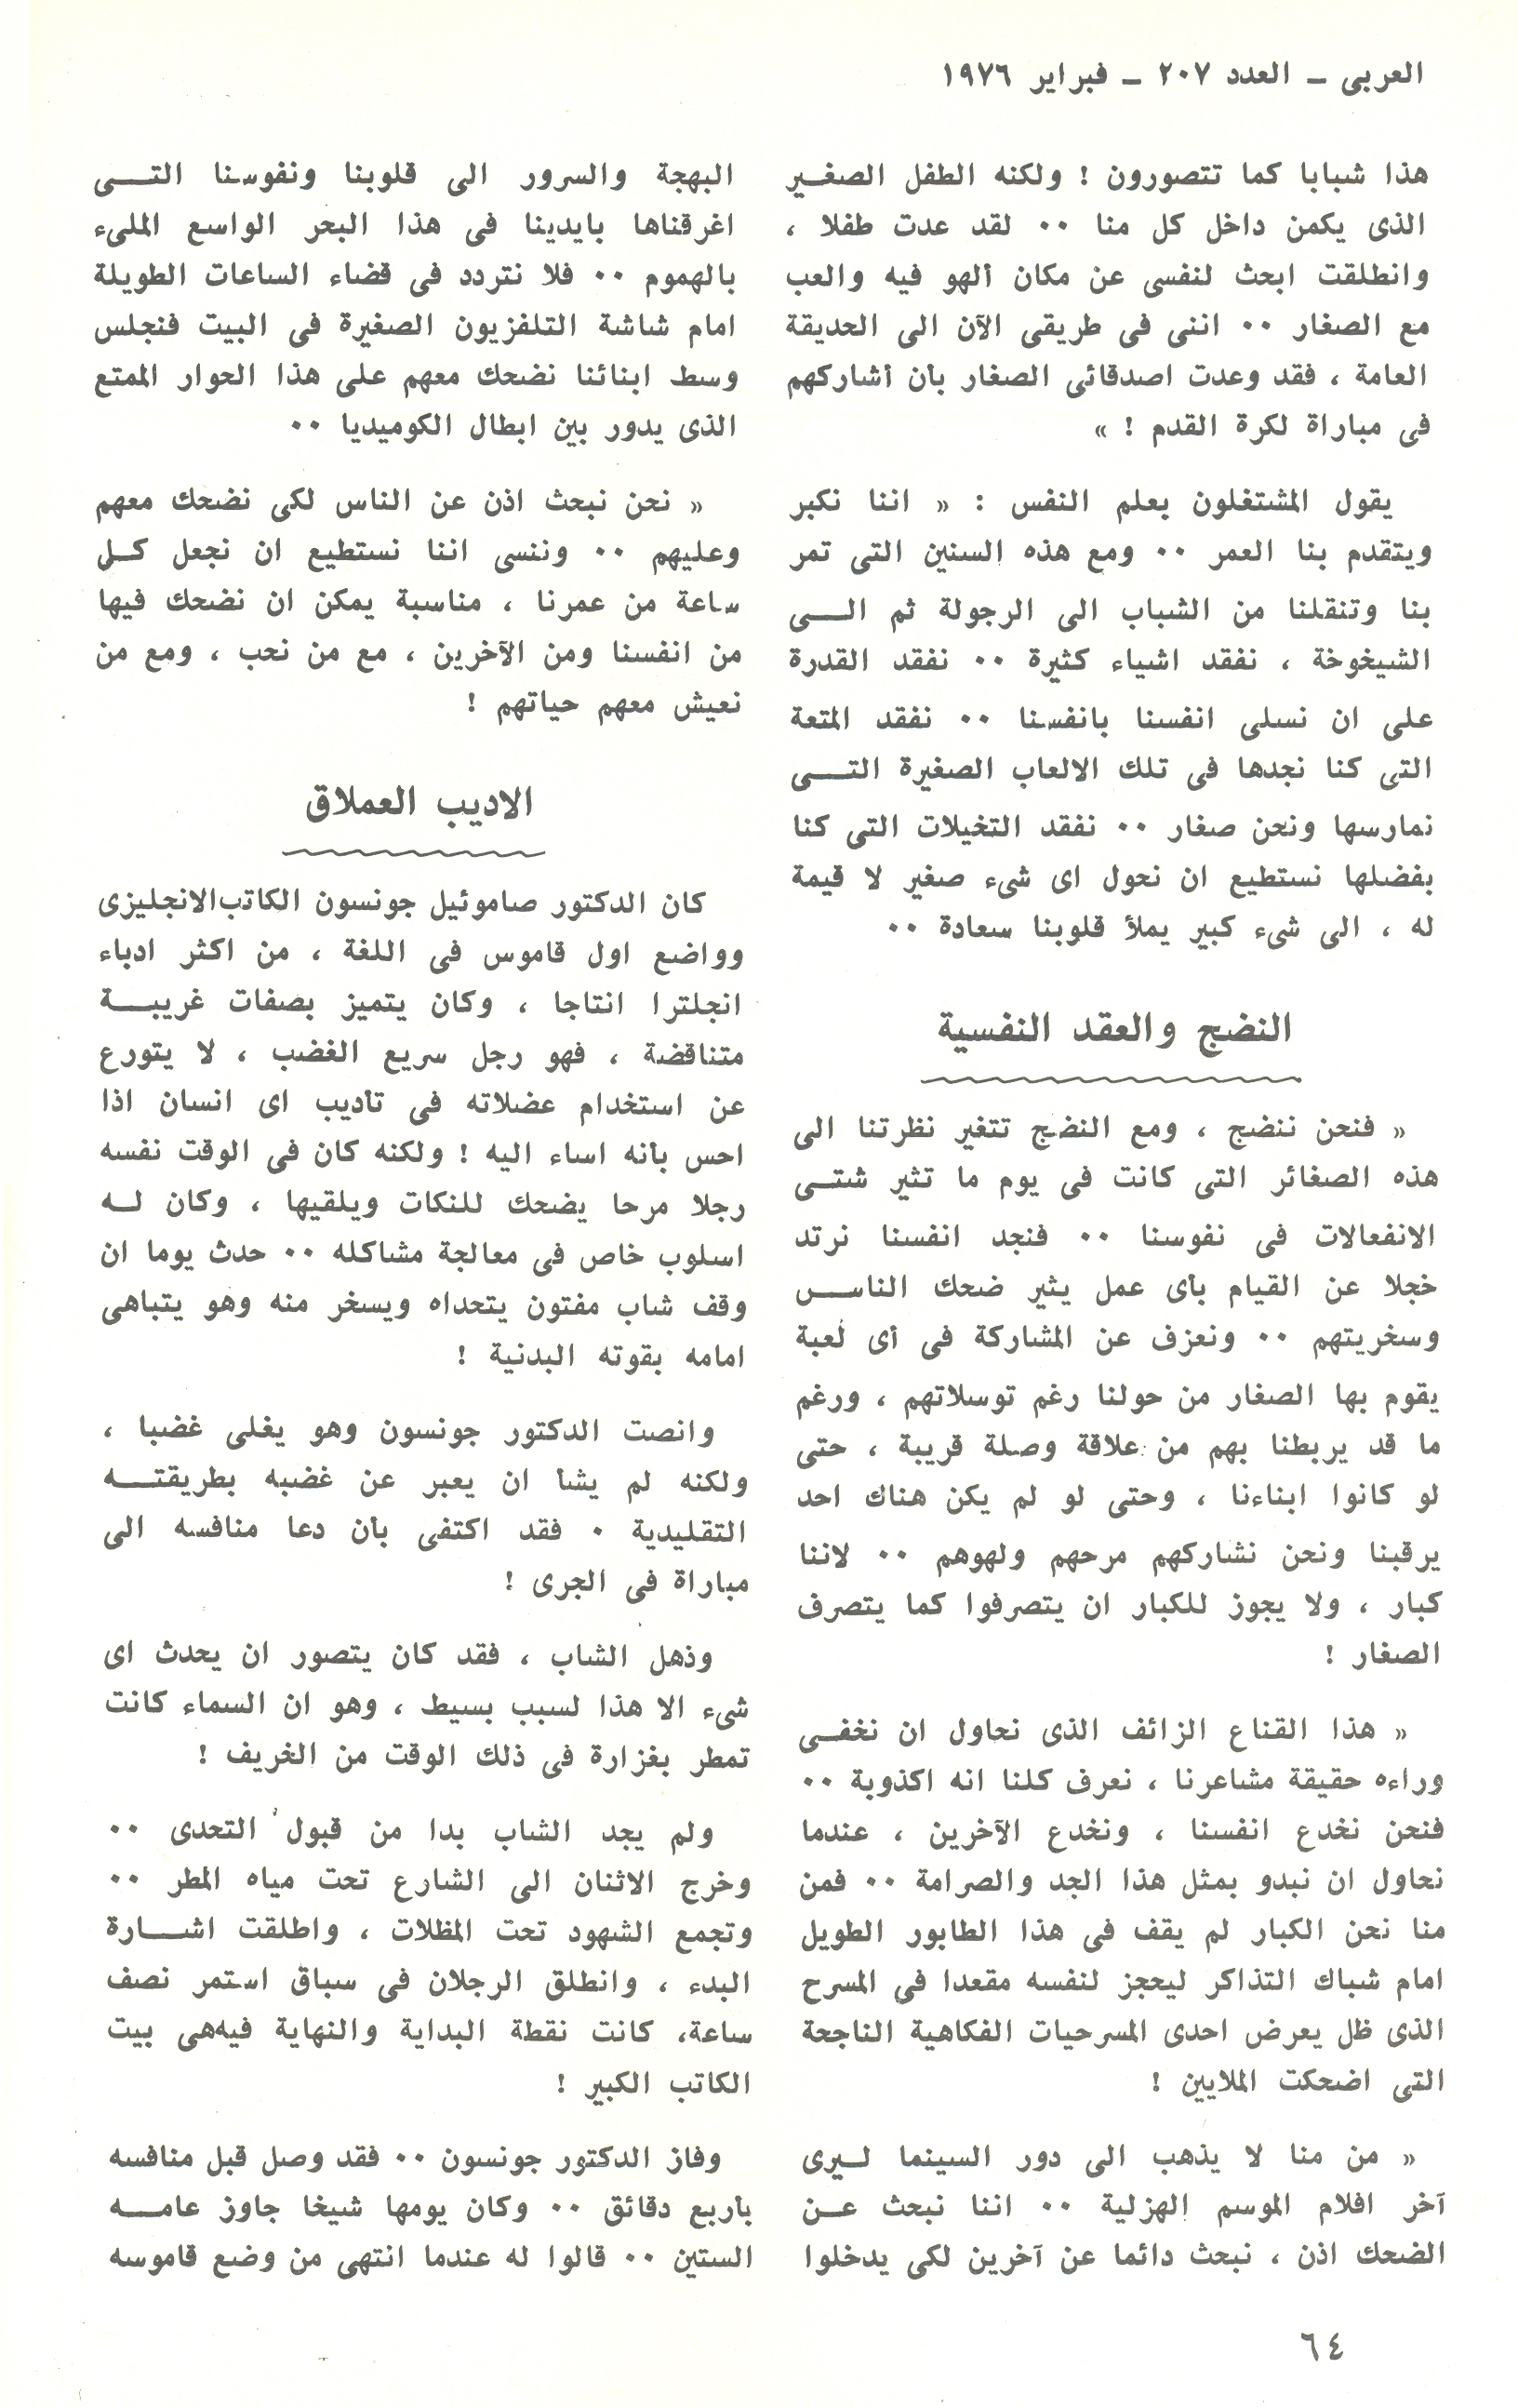 العربى ــ العدد ٢٠٧ ــ فبراير ١٩٧٦
هذا شبابا كما تتصورون ! ولكنه الطفل الصغير
الذى يكمن داخل كل منا ٠٠ لقد عدت طفلا ،
وانطلقت ابحث لنفسى عن مكان ألهو فيه والعب
مع الصغار ٠٠ اننى فى طريقى الآن الى الحديقة
العامة ، فقد وعدت اصدقائى الصغار بأن أشاركهم
فى مباراة لكرة القدم ! »
يقول المشتغلون بعلم النفس : « اننا نكبر
ويتقدم بنا العمر ٠٠ ومع هذه السنين التى تمر
بنا وتنقلنا من الشباب الى الرجولة ثم الى
الشيخوخة ، نفقد اشياء كثيرة ٠٠ نفقد القدرة
على ان نسلى انفسنا بانفسنا ٠٠ نفقد المتعة
التى كنا نجدها فى تلك الالعاب الصغيرة التى
نمارسها ونحن صغار ٠٠ نفقد التخيلات التى كنا
بفضلها نستطيع ان نحول اى شىء صغير لا قيمة
له ، الى شىء كبير يملأ قلوبنا سعادة ٠٠
النضج والعقد النفسية
« فنحن ننضج ، ومع النضج تتغير نظرتنا الى
هذه الصغائر التى كانت فى يوم ما تثير شتى
الانفعالات فى نفوسنا ٠٠ فنجد انفسنا نرتد
خجلا عن القيام بأى عمل يثير ضحك الناس
وسخريتهم ٠٠ ونعزف عن المشاركة فى أى لعبة
يقوم بها الصغار من حولنا رغم توسلاتهم ، ورغم
ما قد يربطنا بهم من علاقة وصلة قريبة ، حتى
لو كانوا ابناءنا ، وحتى لو لم يكن هناك احد
يرقبنا ونحن نشاركهم مرحهم ولهوهم ٠٠ لاننا
كبار ، ولا يجوز للكبار ان يتصرفوا كما يتصرف
الصغار !
« هذا القناع الزائف الذى نحاول ان نخفى
وراءه حقيقة مشاعرنا ، نعرف كلنا انه اكذوبة ٠٠
فنحن نخدع انفسنا ، ونخدع الآخرين ، عندما
نحاول ان نبدو بمثل هذا الجد والصرامة ٠٠ فمن
منا نحن الكبار لم يقف فى هذا الطابور الطويل
امام شباك التذاكر ليحجز لنفسه مقعدا فى المسرح
الذى ظل يعرض احدى المسرحيات الفكاهية الناجحة
التى اضحكت الملايين !
« من منا لا يذهب الى دور السينما ليرى
آخر افلام الموسم الهزلية ٠٠ اننا نبحث عن
الضحك اذن ، نبحث دائما عن آخرين لكى يدخلوا
البهجة والسرور الى قلوبنا ونفوسنا التى
اغرقناها بايدينا فى هذا البحر الواسع المليء
بالهموم ٠٠ فلا نتردد فى قضاء الساعات الطويلة
امام شاشة التلفزيون الصغيرة فى البيت فنجلس
وسط ابنائنا نضحك معهم على هذا الحوار الممتع
الذى يدور بين ابطال الكوميديا ٠٠
« نحن نبحث اذن عن الناس لكى نضحك معهم
وعليهم ٠٠ وننسى اننا نستطيع ان نجعل كل
ساعة من عمرنا ، مناسبة يمكن ان نضحك فيها
من انفسنا ومن الآخرين ، مع من نحب ، ومع من
نعيش معهم حياتهم !
الاديب العملاق
كان الدكتور صاموئيل جونسون الكاتب الانجليزى
وواضع اول قاموس فى اللغة ، من اكثر ادباء
انجلترا انتاجا ، وكان يتميز بصفات غريبة
متناقضة ، فهو رجل سريع الغضب ، لا يتورع
عن استخدام عضلاته فى تأديب اى انسان اذا
احس بأنه اساء اليه ! ولكنه كان فى الوقت نفسه
رجلا مرحا يضحك للنكات ويلقيها ، وكان له
اسلوب خاص فى معالجة مشاكله ٠٠ حدث يوما ان
وقف شاب مفتون يتحداه ويسخر منه وهو يتباهى
امامه بقوته البدنية !
وانصت الدكتور جونسون وهو يغلى غضبا ،
ولكنه لم يشأ ان يعبر عن غضبه بطريقته
التقليدية ٠ فقد اكتفى بأن دعا منافسه الى
مباراة فى الجرى !
وذهل الشاب ، فقد كان يتصور ان يحدث اى
شىء الا هذا لسبب بسيط ، وهو ان السماء كانت
تمطر بغزارة فى ذلك الوقت من الخريف !
ولم يجد الشاب بدا من قبول التحدى ٠٠
وخرج الاثنان الى الشارع تحت مياه المطر ٠٠
وتجمع الشهود تحت المظلات ، واطلقت اشارة
البدء ، وانطلق الرجلان فى سباق استمر نصف
ساعة، كانت نقطة البداية والنهاية فيه هى بيت
الكاتب الكبير !
وفاز الدكتور جونسون ٠٠ فقد وصل قبل منافسه
بأربع دقائق ٠٠ وكان يومها شيخا جاوز عامه
الستين ٠٠ قالوا له عندما انتهى من وضع قاموسه
٦٤